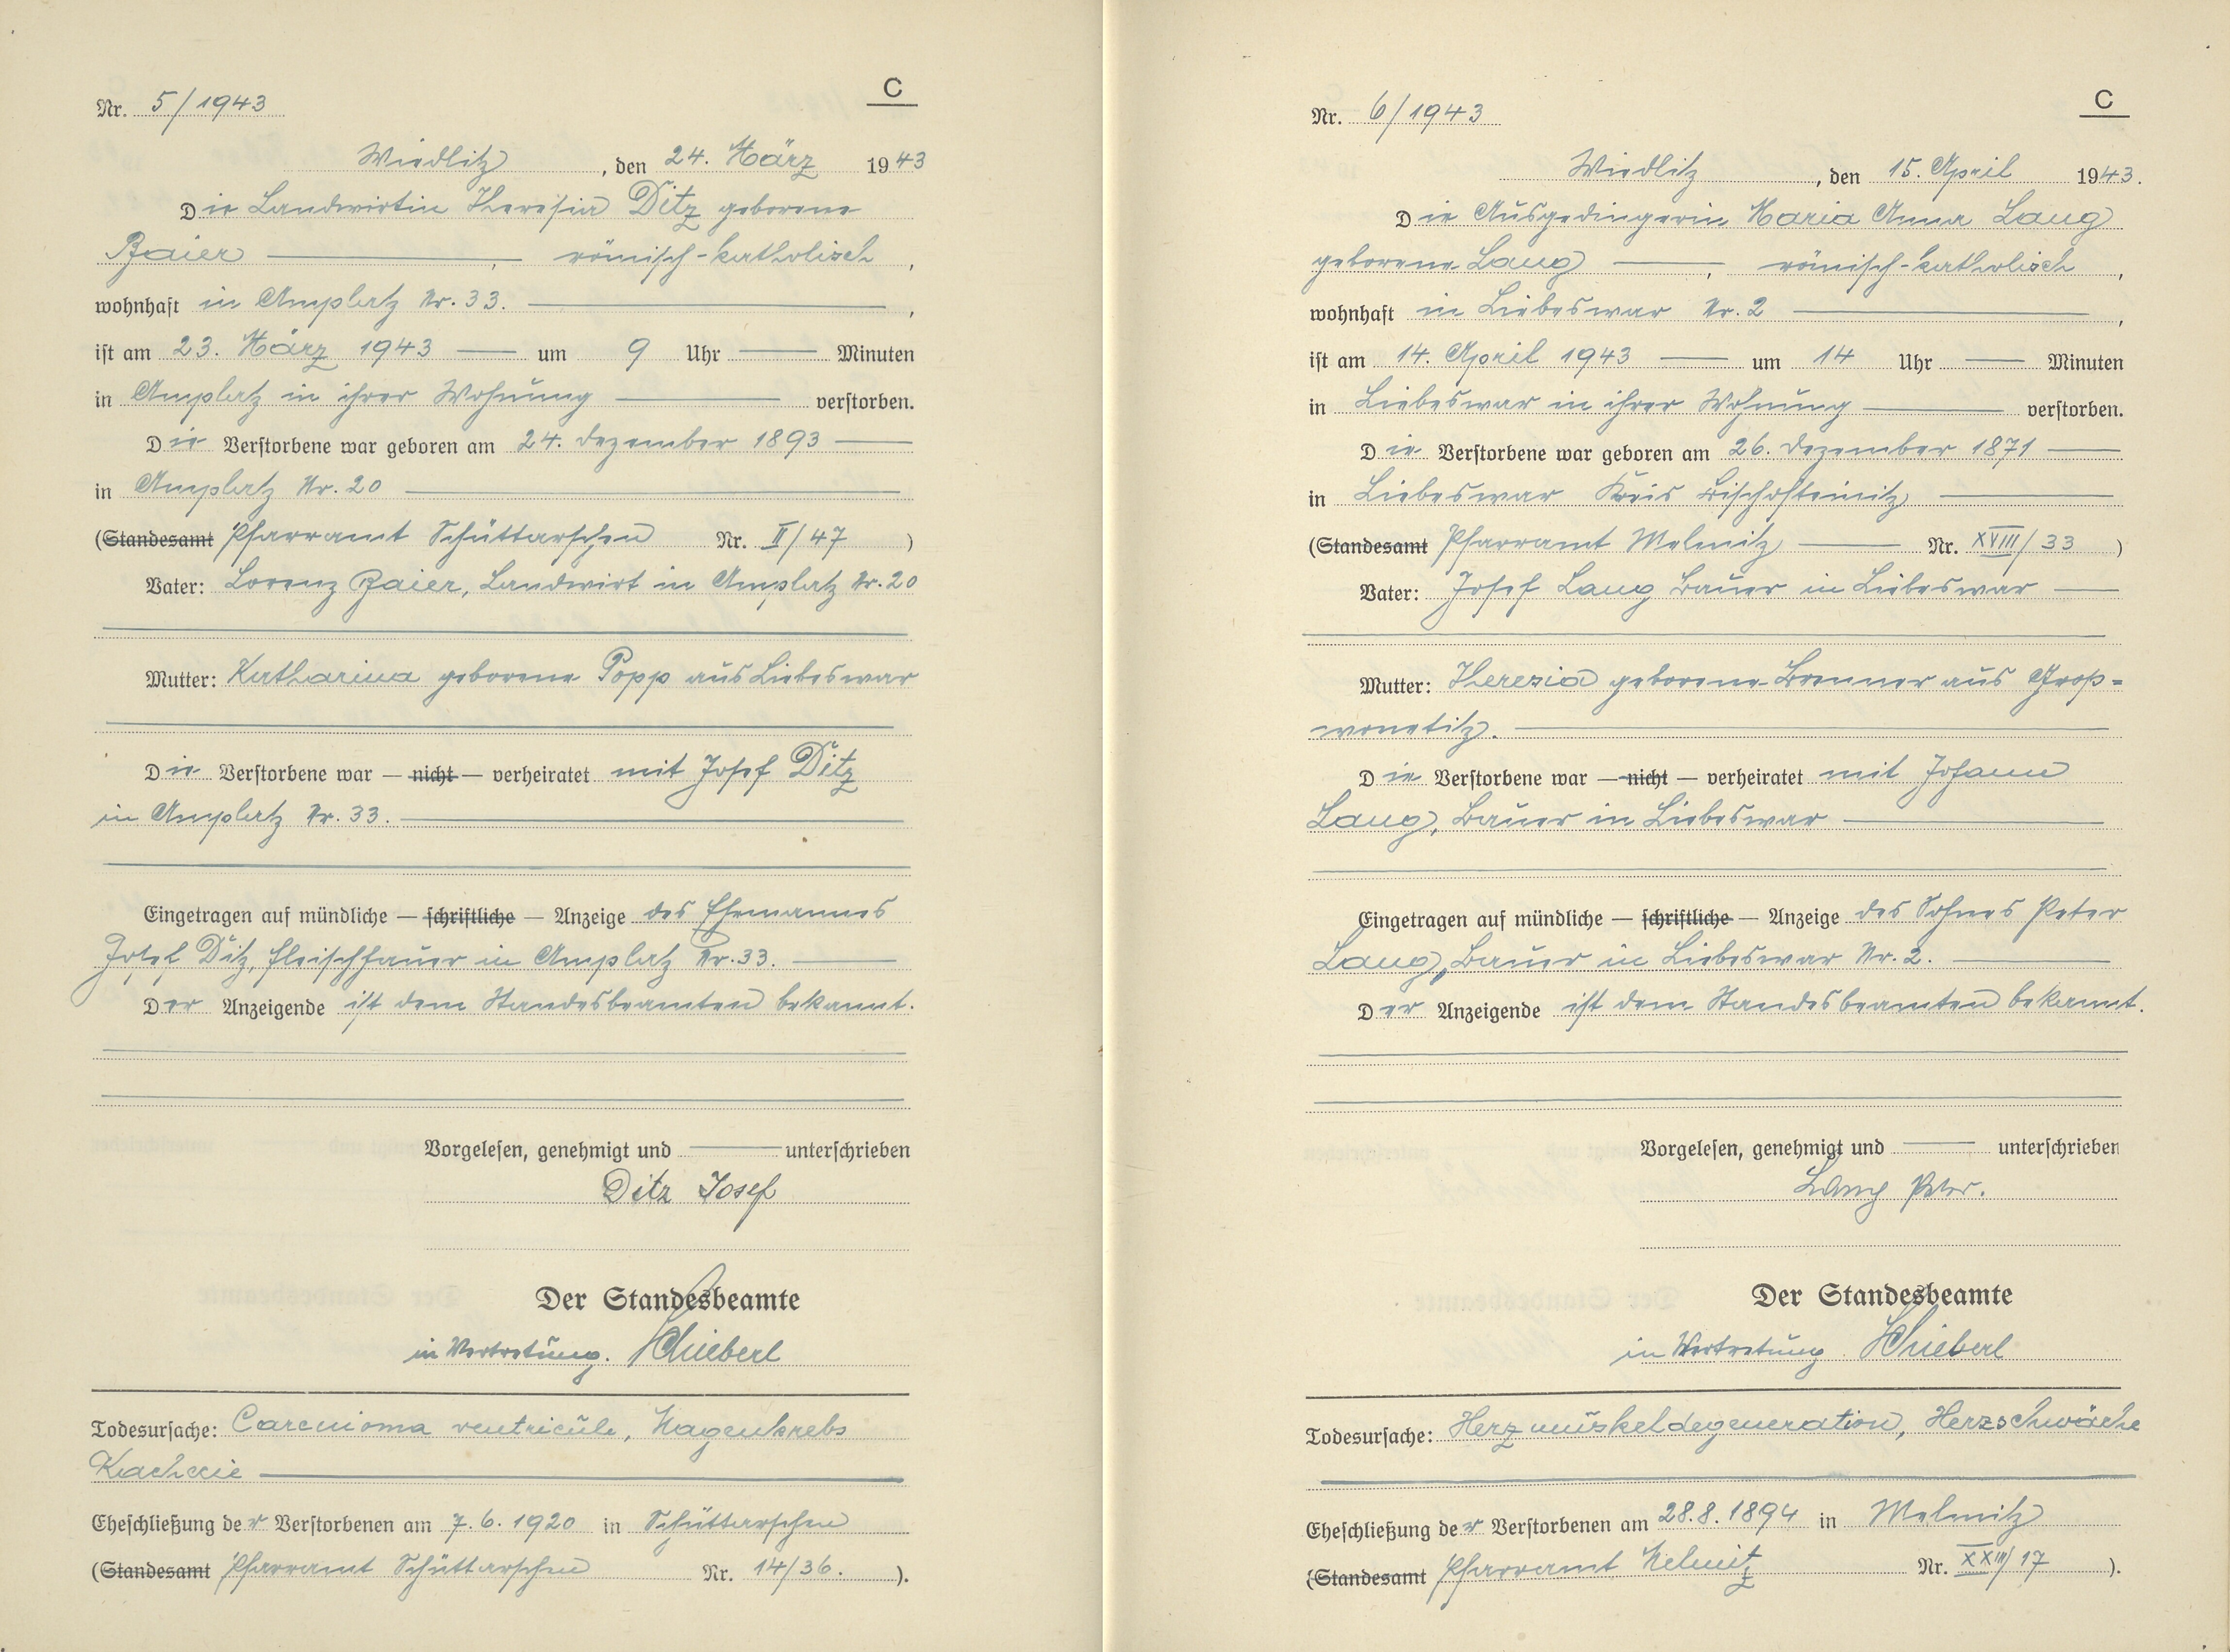 C
Nr. 5/1943
Wiedlitz, den 24. März 1943
Die Landwirtin Theresia Ditz geborene
Baier, römisch-katholisch,
wohnhaft in Amplatz Nr. 33.,
ist am 23. März 1943 um 9 Uhr Minuten
in Amplatz in ihrer Wohnung verstorben.
Die Verstorbene war geboren am 24. Dezember 1893
in Amplatz Nr. 20
(Standesamt Pfarramt Schüttarschen Nr. II/47)
Vater: Lorenz Baier, Landwirt in Amplatz Nr. 20
Mutter: Katharina geborene Popp aus Liebeswar
Die Verstorbene war — nicht — verheiratet mit Josef Ditz
in Amplatz Nr. 33.
Eingetragen auf mündliche — schriftliche — Anzeige des Ehemannes
Josef Ditz, Fleischhauer in Amplatz Nr. 33.
Der Anzeigende ist dem Standesbeamten bekannt.
Vorgelesen, genehmigt und unterschrieben
Ditz Josef
Der Standesbeamte
in Vertretung. Schieberl
Todesursache: Carcinoma ventriculi, Magenkrebs
Kachexie
Eheschließung der Verstorbenen am 7.6.1920 in Schüttarschen
(Standesamt Pfarramt Schüttarschen Nr. 14/36.).
C
Nr. 6/1943
Wiedlitz, den 15. April 1943.
Die Ausgedingerin Maria Anna Lang
geborene Lang, römisch-katholisch,
wohnhaft in Liebeswar Nr. 2,
ist am 14. April 1943 um 14 Uhr Minuten
in Liebeswar in ihrer Wohnung verstorben.
Die Verstorbene war geboren am 26. Dezember 1871
in Liebeswar Kreis Bischofteinitz
(Standesamt Pfarramt Melmitz Nr. XVIII/33)
Vater: Josef Lang Bauer in Liebeswar
Mutter: Theresia geborene Brenner aus Groß=
wonetitz.
Die Verstorbene war — nicht — verheiratet mit Johann
Lang, Bauer in Liebeswar
Eingetragen auf mündliche — schriftliche — Anzeige des Sohnes Peter
Lang, Bauer in Liebeswar Nr. 2.
Der Anzeigende ist dem Standesbeamten bekannt.
Vorgelesen, genehmigt und unterschrieben
Lang Peter.
Der Standesbeamte
in Vertretung Schieberl
Todesursache: Herzmuskeldegeneration, Herzschwäche
Eheschließung der Verstorbenen am 28.8.1894 in Melmitz
(Standesamt Pfarramt Melmitz Nr. XXIII/17).